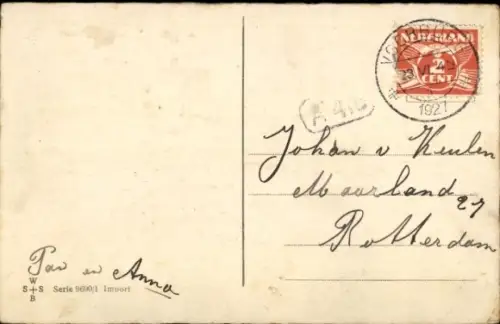 NEDERLAND
2
CENT
1927
Johan v Keulen
Maarland
27
Rotterdam
en Anna
W
S+S
B
Serie 9690/1 Import